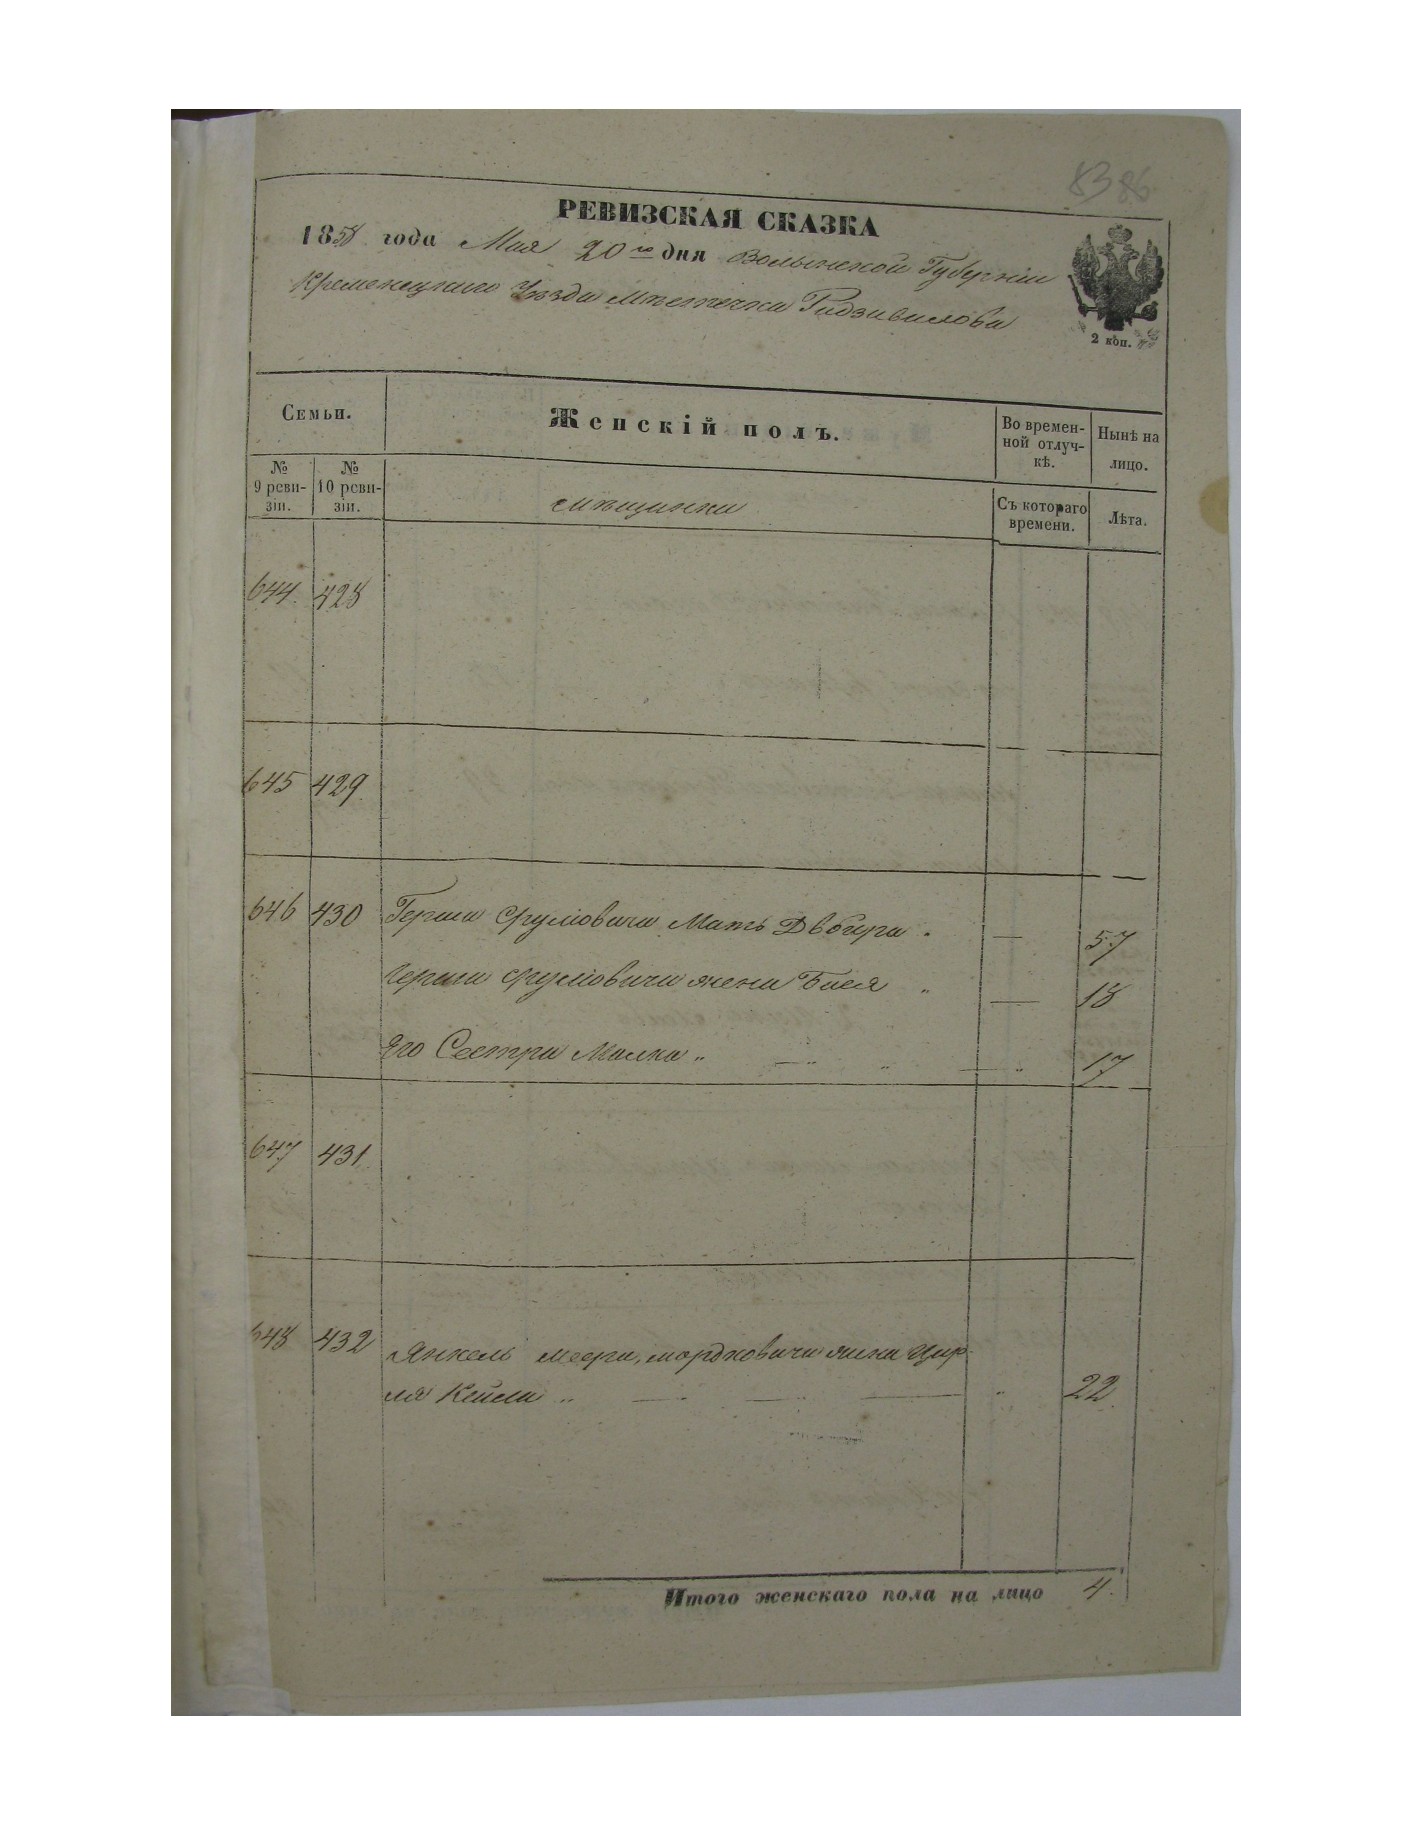 83 86
РЕВИЗСКАЯ СКАЗКА
1858 года Мая 20го дня Волынской Губерніи
Кременецкаго Уѣзда Мѣстечка Радзивилова
2 коп.
Семьи.
Женскій полъ.
Во времен-
ной отлуч-
кѣ.
Нынѣ на
лицо.
№
9 реви-
зіи.
№
10 реви-
зіи.
мѣщанки
Съ котораго
времени.
Лѣта.
644 428
645 429
646 430 Герша Сруліовича Мать Двойра 57
Герша Сруліовича жена Бася 18
Его Сестра Малка 17
647 431
648 432 Янкель Меера, мордковича жена Цир-
ля Кейла 22
Итого женскаго пола на лицо 4.